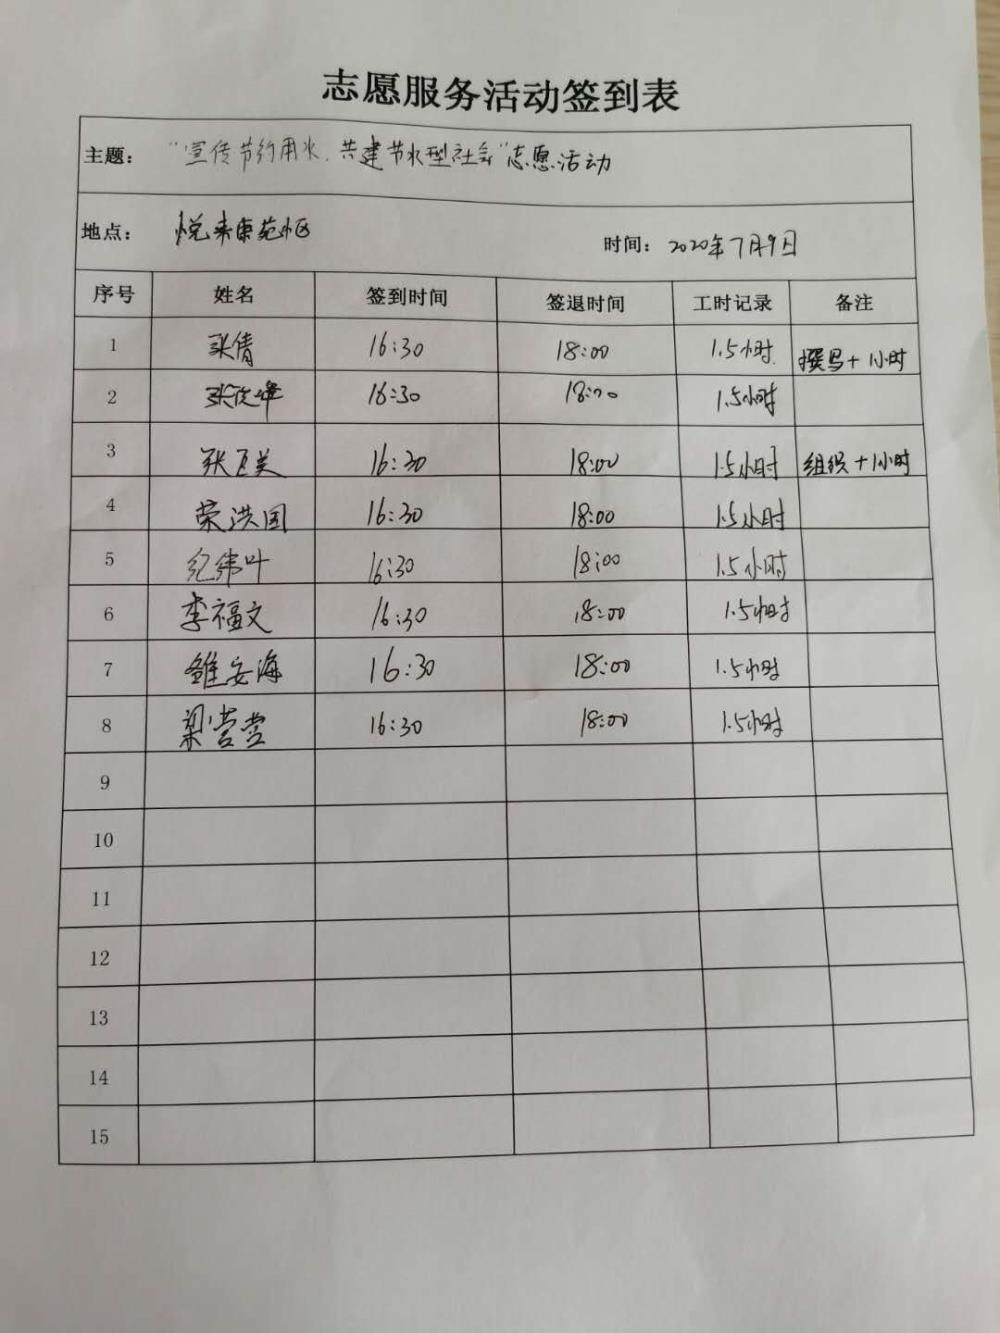 志愿服务活动签到表
主题： “宣传节约用水、共建节水型社会”志愿活动
地点： 悦来东苑小区 时间： 2020年7月9日
序号 姓名 签到时间 签退时间 工时记录 备注
1 张倩 16:30 18:00 1.5小时 撰写+1小时
2 张俊峰 16:30 18:00 1.5小时
3 16:30 18:00 1.5小时 组织+1小时
4 荣洪国 16:30 18:00 1.5小时
5 纪纬叶 16:30 18:00 1.5小时
6 李福文 16:30 18:00 1.5小时
7 雒安海 16:30 18:00 1.5小时
8 梁营营 16:30 18:00 1.5小时
9
10
11
12
13
14
15